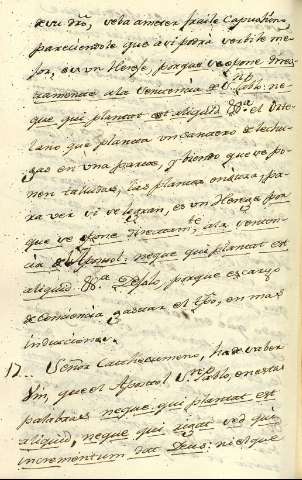 de su Dro, veba a meter fraile Capuchino,
pareciendole que asi podrà servirle me-
jor, es un Herege, porque se opone direc-
tamente a la sentencia de Sn Pablo: ne-
que qui plantat est aliquid &a. el Orte-
lano que planta un sanxero de lechu-
gas en una parte, y biendo que se po-
nen talludas, las planta en otra, pa-
ra ver si se logran, es un Herege por
que se opone directamte a la senten-
cia del Apostol: neque qui plantat est
aliquid &a. Dejolo, porque es cargo
de conciencia gastar el tpo, en mas
inducciones.
17. Señor Cacthecumeno, ha de saber
Vm, que el Apostol Sn Pablo, en estas
palabras neque qui plantat est
aliquid, neque qui rigat sed qui
incrementum dat Deus: ni el que